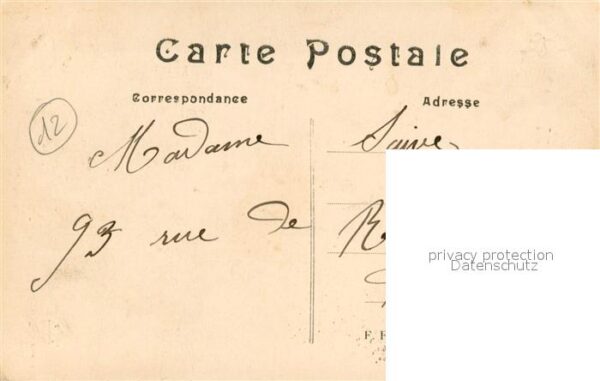 Carte Postale
Correspondance Adresse
12
Madame
93 rue de R
privacy protection
Datenschutz
F. F